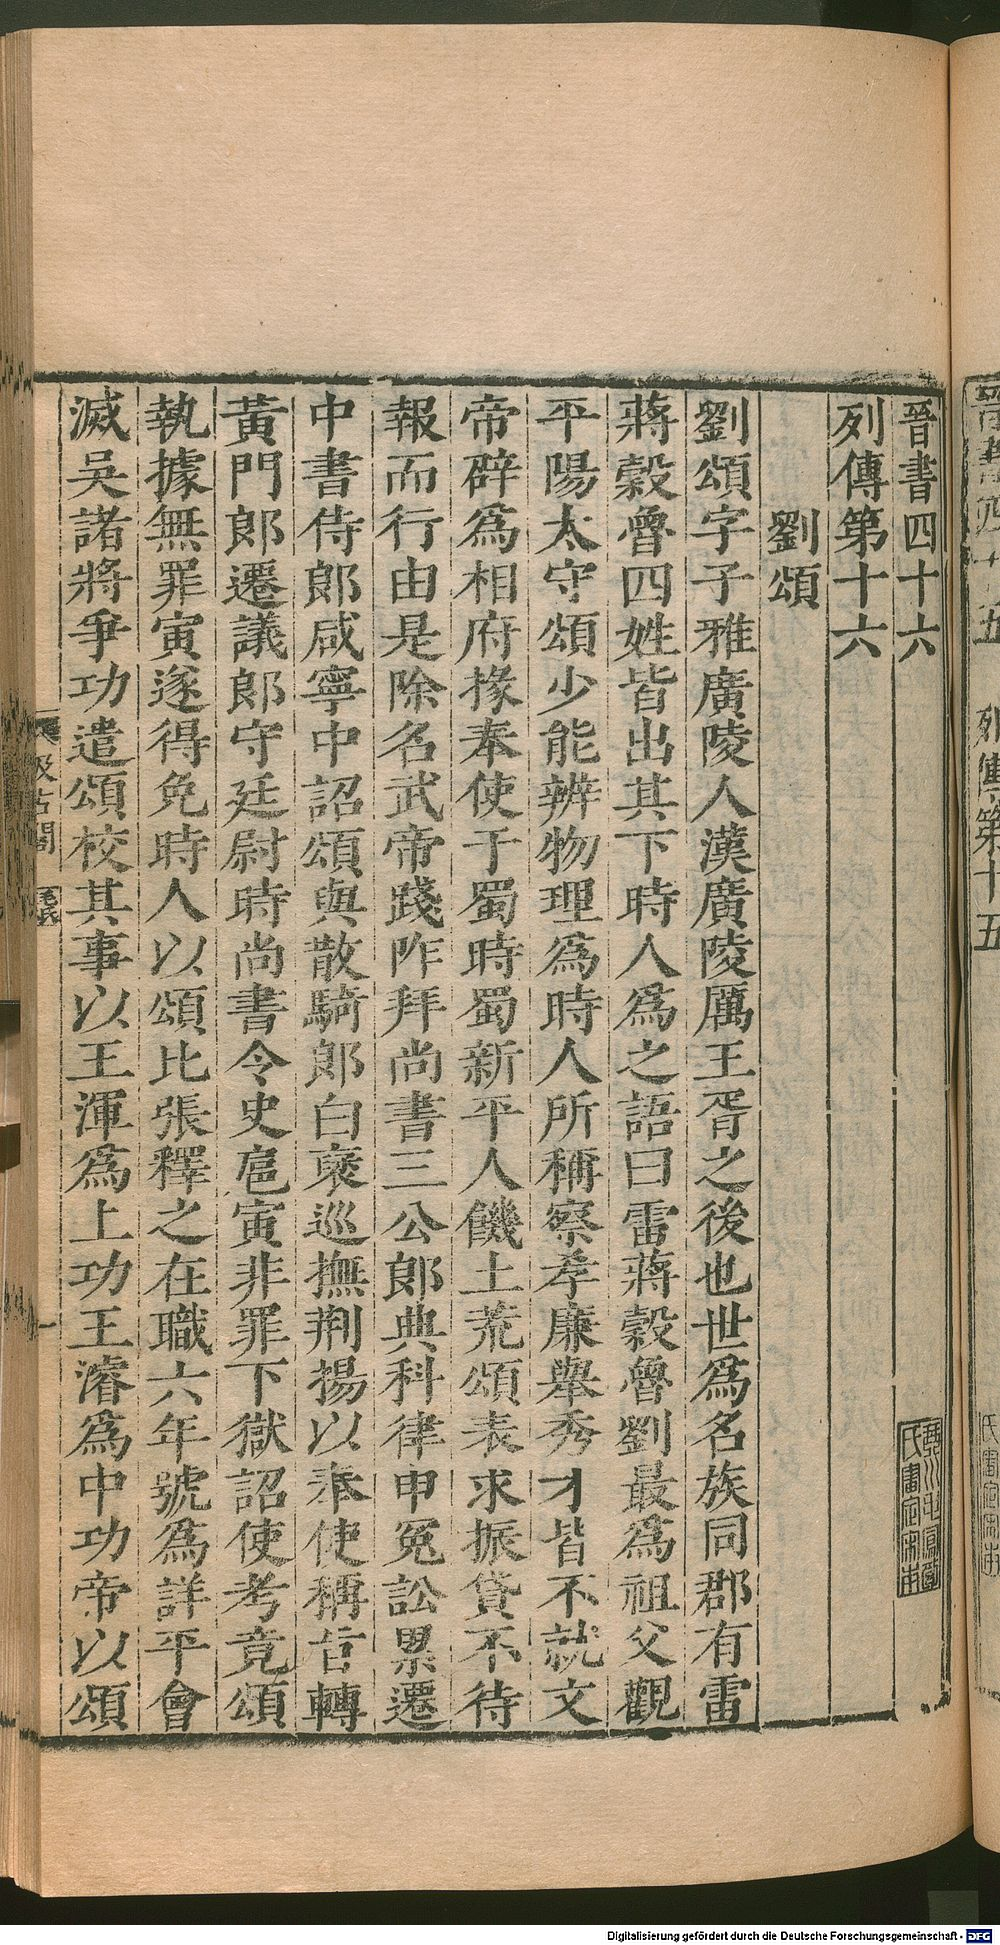 晉書四十六
列傳第十六
劉頌
劉頌字子雅廣陵人漢廣陵厲王胥之後也世爲名族同郡有雷
蔣穀魯四姓皆出其下時人爲之語曰雷蔣穀魯劉最爲祖父觀
平陽太守頌少能辨物理爲時人所稱察孝廉舉秀才皆不就文
帝辟爲相府掾奉使于蜀時蜀新平人饑土荒頌表求振貸不待
報而行由是除名武帝踐阼拜尚書三公郎典科律申冤訟累遷
中書侍郎咸寧中詔頌與散騎郎白褒巡撫荆揚以奉使稱旨轉
黃門郎遷議郎守廷尉時尚書令史扈寅非罪下獄詔使考竟頌
執據無罪寅遂得免時人以頌比張釋之在職六年號爲詳平會
滅吳諸將爭功遣頌校其事以王渾爲上功王濬爲中功帝以頌
汲古閣
毛氏
列傳第十五
Digitalisierung gefördert durch die Deutsche Forschungsgemeinschaft - DFG